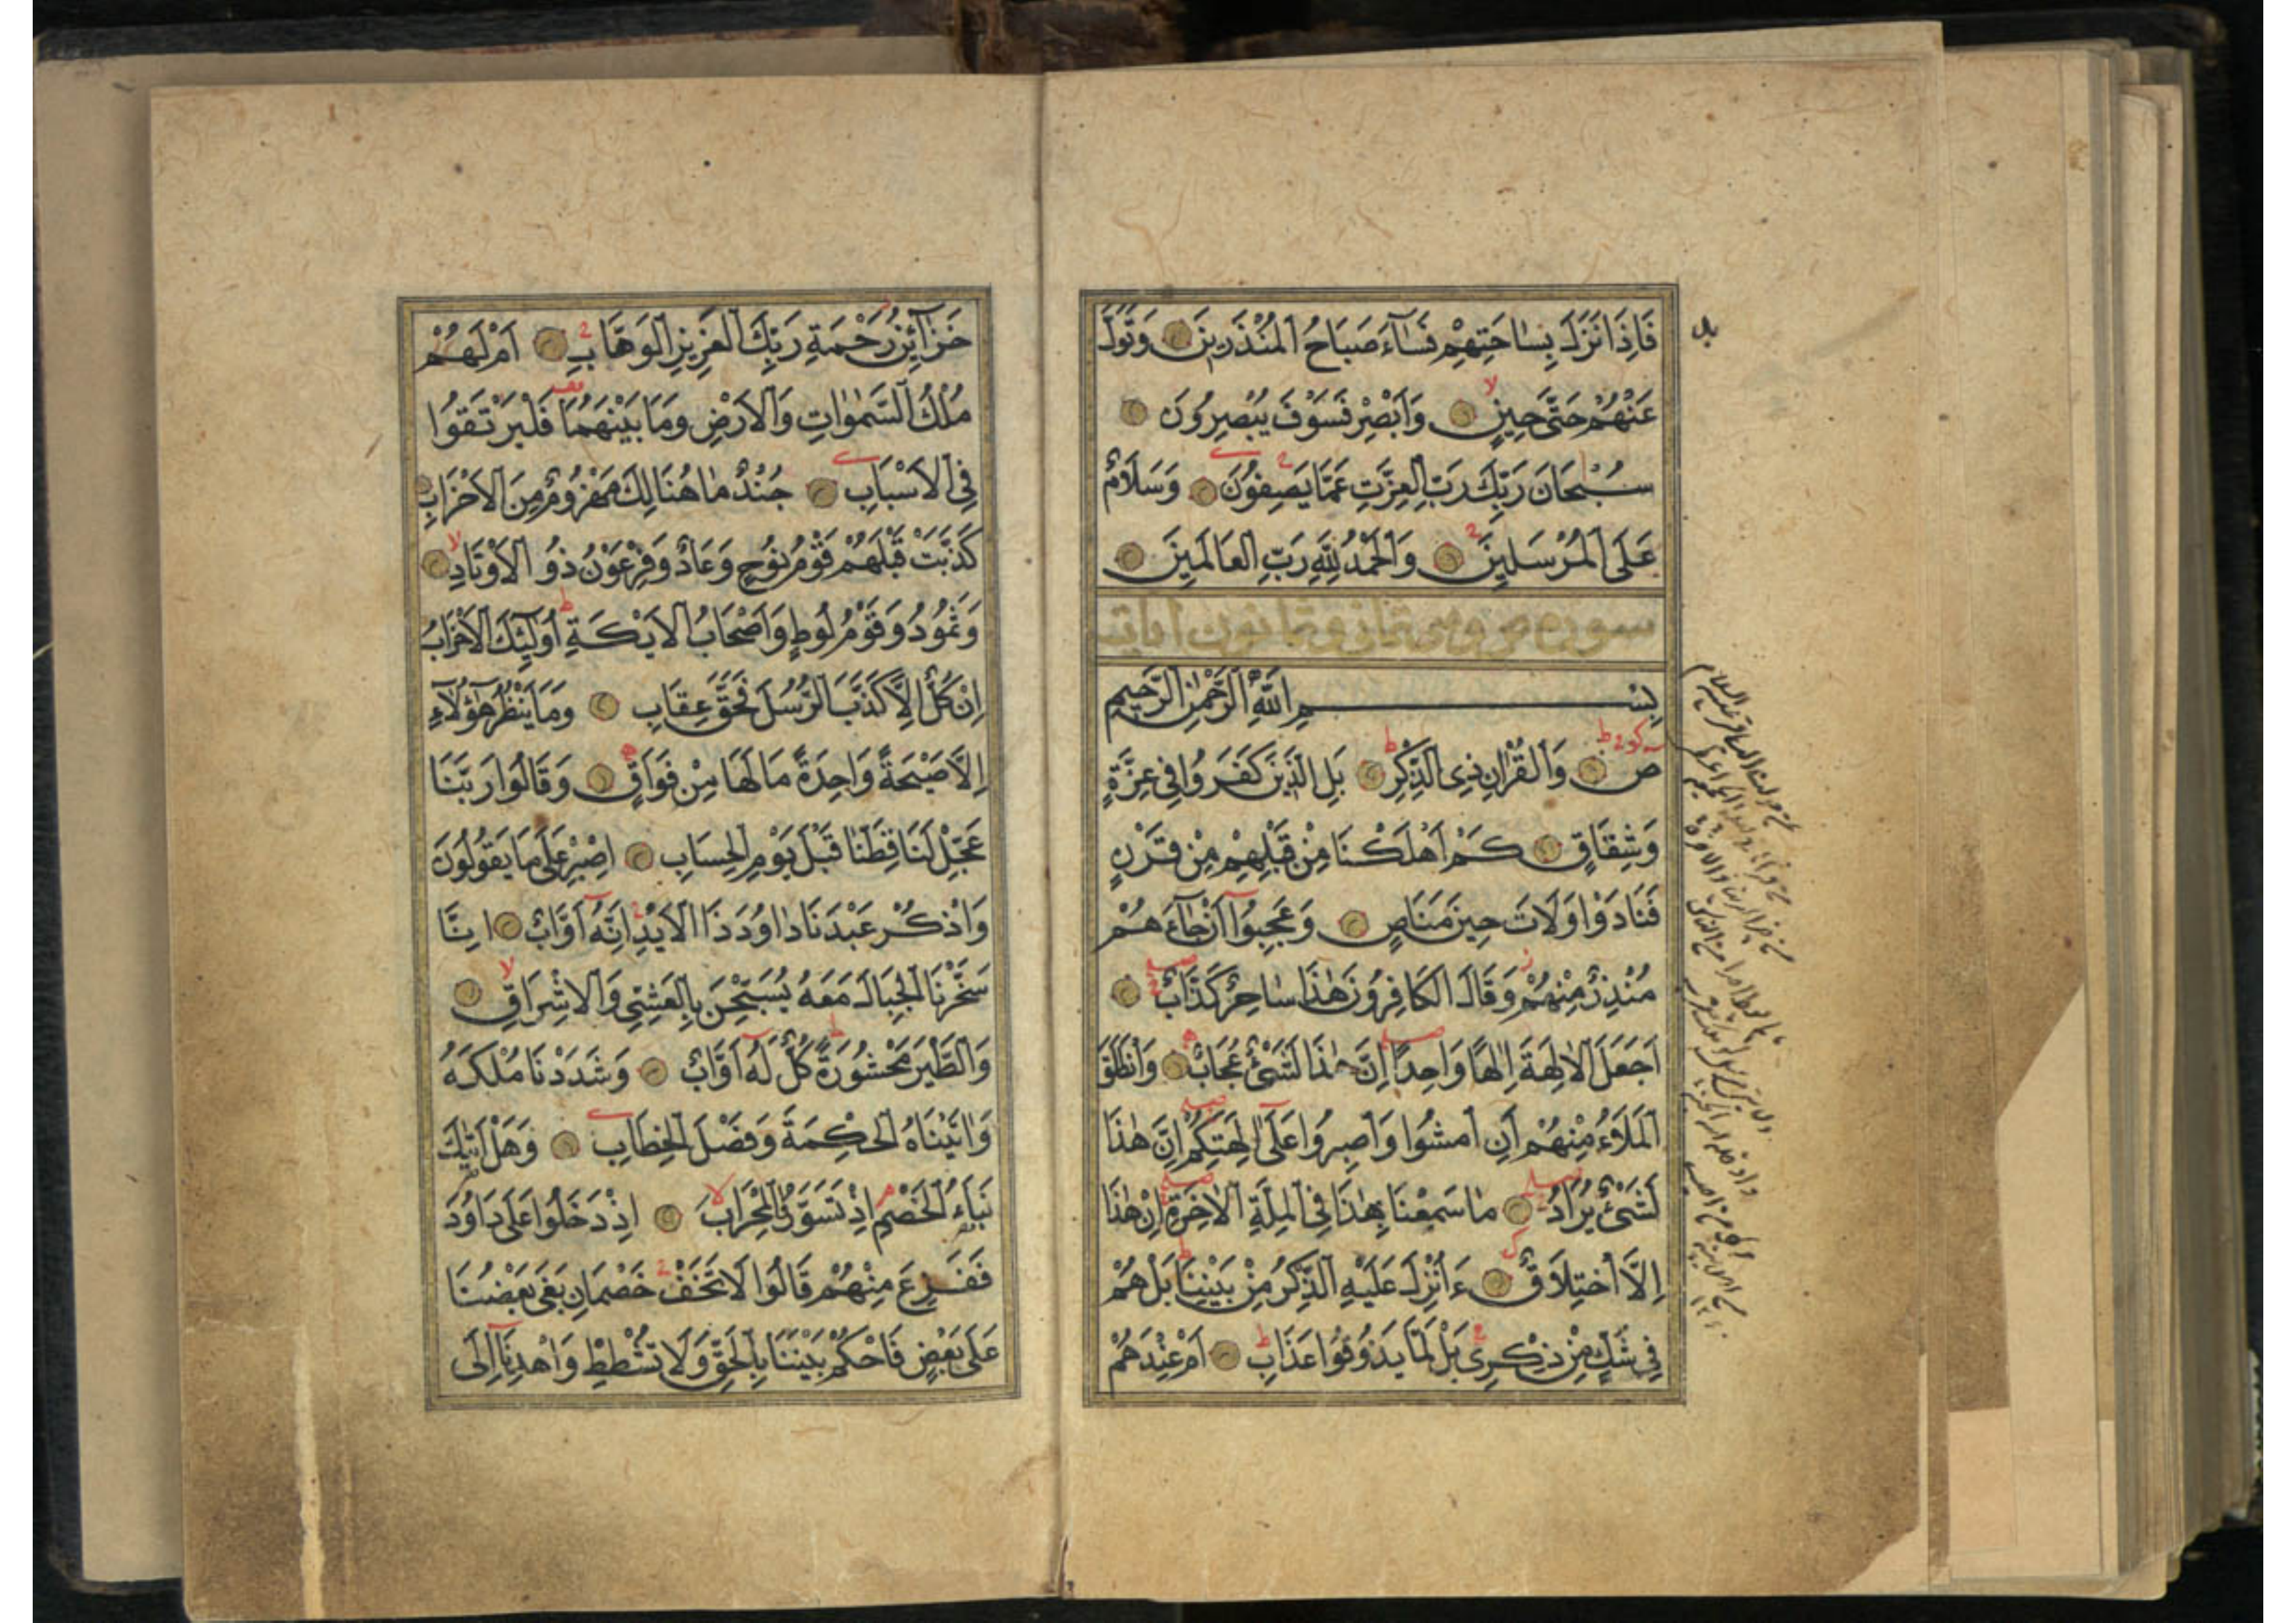 فَاِذَا نَزَلَ بِسَاحَتِهِمْ فَسَآءَ صَبَاحُ الْمُنْذَرِينَ وَتَوَلَّ
عَنْهُمْ حَتَّى حِينٍ وَاَبْصِرْ فَسَوْفَ يُبْصِرُونَ
سُبْحَانَ رَبِّكَ رَبِّ الْعِزَّتِ عَمَّا يَصِفُونَ وَسَلَامٌ
عَلَى الْمُرْسَلِينَ وَالْحَمْدُ لِلّٰهِ رَبِّ الْعَالَمِينَ
سوره ص وهي ثمان وثمانون ايات
بِسْمِ اللّٰهِ الرَّحْمٰنِ الرَّحِيمِ
ص وَالْقُرْاٰنِ ذِى الذِّكْرِ بَلِ الَّذِينَ كَفَرُوا فِى عِزَّةٍ
وَشِقَاقٍ كَمْ اَهْلَكْنَا مِنْ قَبْلِهِمْ مِنْ قَرْنٍ
فَنَادَوْا وَلَاتَ حِينَ مَنَاصٍ وَعَجِبُوا اَنْ جَآءَهُمْ
مُنْذِرٌ مِنْهُمْ وَقَالَ الْكَافِرُونَ هٰذَا سَاحِرٌ كَذَّابٌ
اَجَعَلَ الْاٰلِهَةَ اِلٰهًا وَاحِدًا اِنَّ هٰذَا لَشَىْءٌ عُجَابٌ وَانْطَلَقَ
الْمَلَاُ مِنْهُمْ اَنِ امْشُوا وَاصْبِرُوا عَلَى اٰلِهَتِكُمْ اِنَّ هٰذَا
لَشَىْءٌ يُرَادُ مَا سَمِعْنَا بِهٰذَا فِى الْمِلَّةِ الْاٰخِرَةِ اِنْ هٰذَا
اِلَّا اخْتِلَاقٌ ءَاُنْزِلَ عَلَيْهِ الذِّكْرُ مِنْ بَيْنِنَا بَلْ هُمْ
فِى شَكٍّ مِنْ ذِكْرِى بَلْ لَمَّا يَذُوقُوا عَذَابِ اَمْ عِنْدَهُمْ
خَزَآئِنُ رَحْمَةِ رَبِّكَ الْعَزِيزِ الْوَهَّابِ اَمْ لَهُمْ
مُلْكُ السَّمٰوَاتِ وَالْاَرْضِ وَمَا بَيْنَهُمَا فَلْيَرْتَقُوا
فِى الْاَسْبَابِ جُنْدٌ مَا هُنَالِكَ مَهْزُومٌ مِنَ الْاَحْزَابِ
كَذَّبَتْ قَبْلَهُمْ قَوْمُ نُوحٍ وَعَادٌ وَفِرْعَوْنُ ذُو الْاَوْتَادِ
وَثَمُودُ وَقَوْمُ لُوطٍ وَاَصْحَابُ الْاَيْكَةِ اُولٰٓئِكَ الْاَحْزَابُ
اِنْ كُلٌّ اِلَّا كَذَّبَ الرُّسُلَ فَحَقَّ عِقَابِ وَمَا يَنْظُرُ هٰٓؤُلَآءِ
اِلَّا صَيْحَةً وَاحِدَةً مَا لَهَا مِنْ فَوَاقٍ وَقَالُوا رَبَّنَا
عَجِّلْ لَنَا قِطَّنَا قَبْلَ يَوْمِ الْحِسَابِ اِصْبِرْ عَلَى مَا يَقُولُونَ
وَاذْكُرْ عَبْدَنَا دَاوُدَ ذَا الْاَيْدِ اِنَّهُ اَوَّابٌ اِنَّا
سَخَّرْنَا الْجِبَالَ مَعَهُ يُسَبِّحْنَ بِالْعَشِىِّ وَالْاِشْرَاقِ
وَالطَّيْرَ مَحْشُورَةً كُلٌّ لَهُ اَوَّابٌ وَشَدَدْنَا مُلْكَهُ
وَاٰتَيْنَاهُ الْحِكْمَةَ وَفَصْلَ الْخِطَابِ وَهَلْ اَتٰيكَ
نَبَاُ الْخَصْمِ اِذْ تَسَوَّرُوا الْمِحْرَابَ اِذْ دَخَلُوا عَلَى دَاوُدَ
فَفَزِعَ مِنْهُمْ قَالُوا لَا تَخَفْ خَصْمَانِ بَغَى بَعْضُنَا
عَلَى بَعْضٍ فَاحْكُمْ بَيْنَنَا بِالْحَقِّ وَلَا تُشْطِطْ وَاهْدِنَا اِلَى